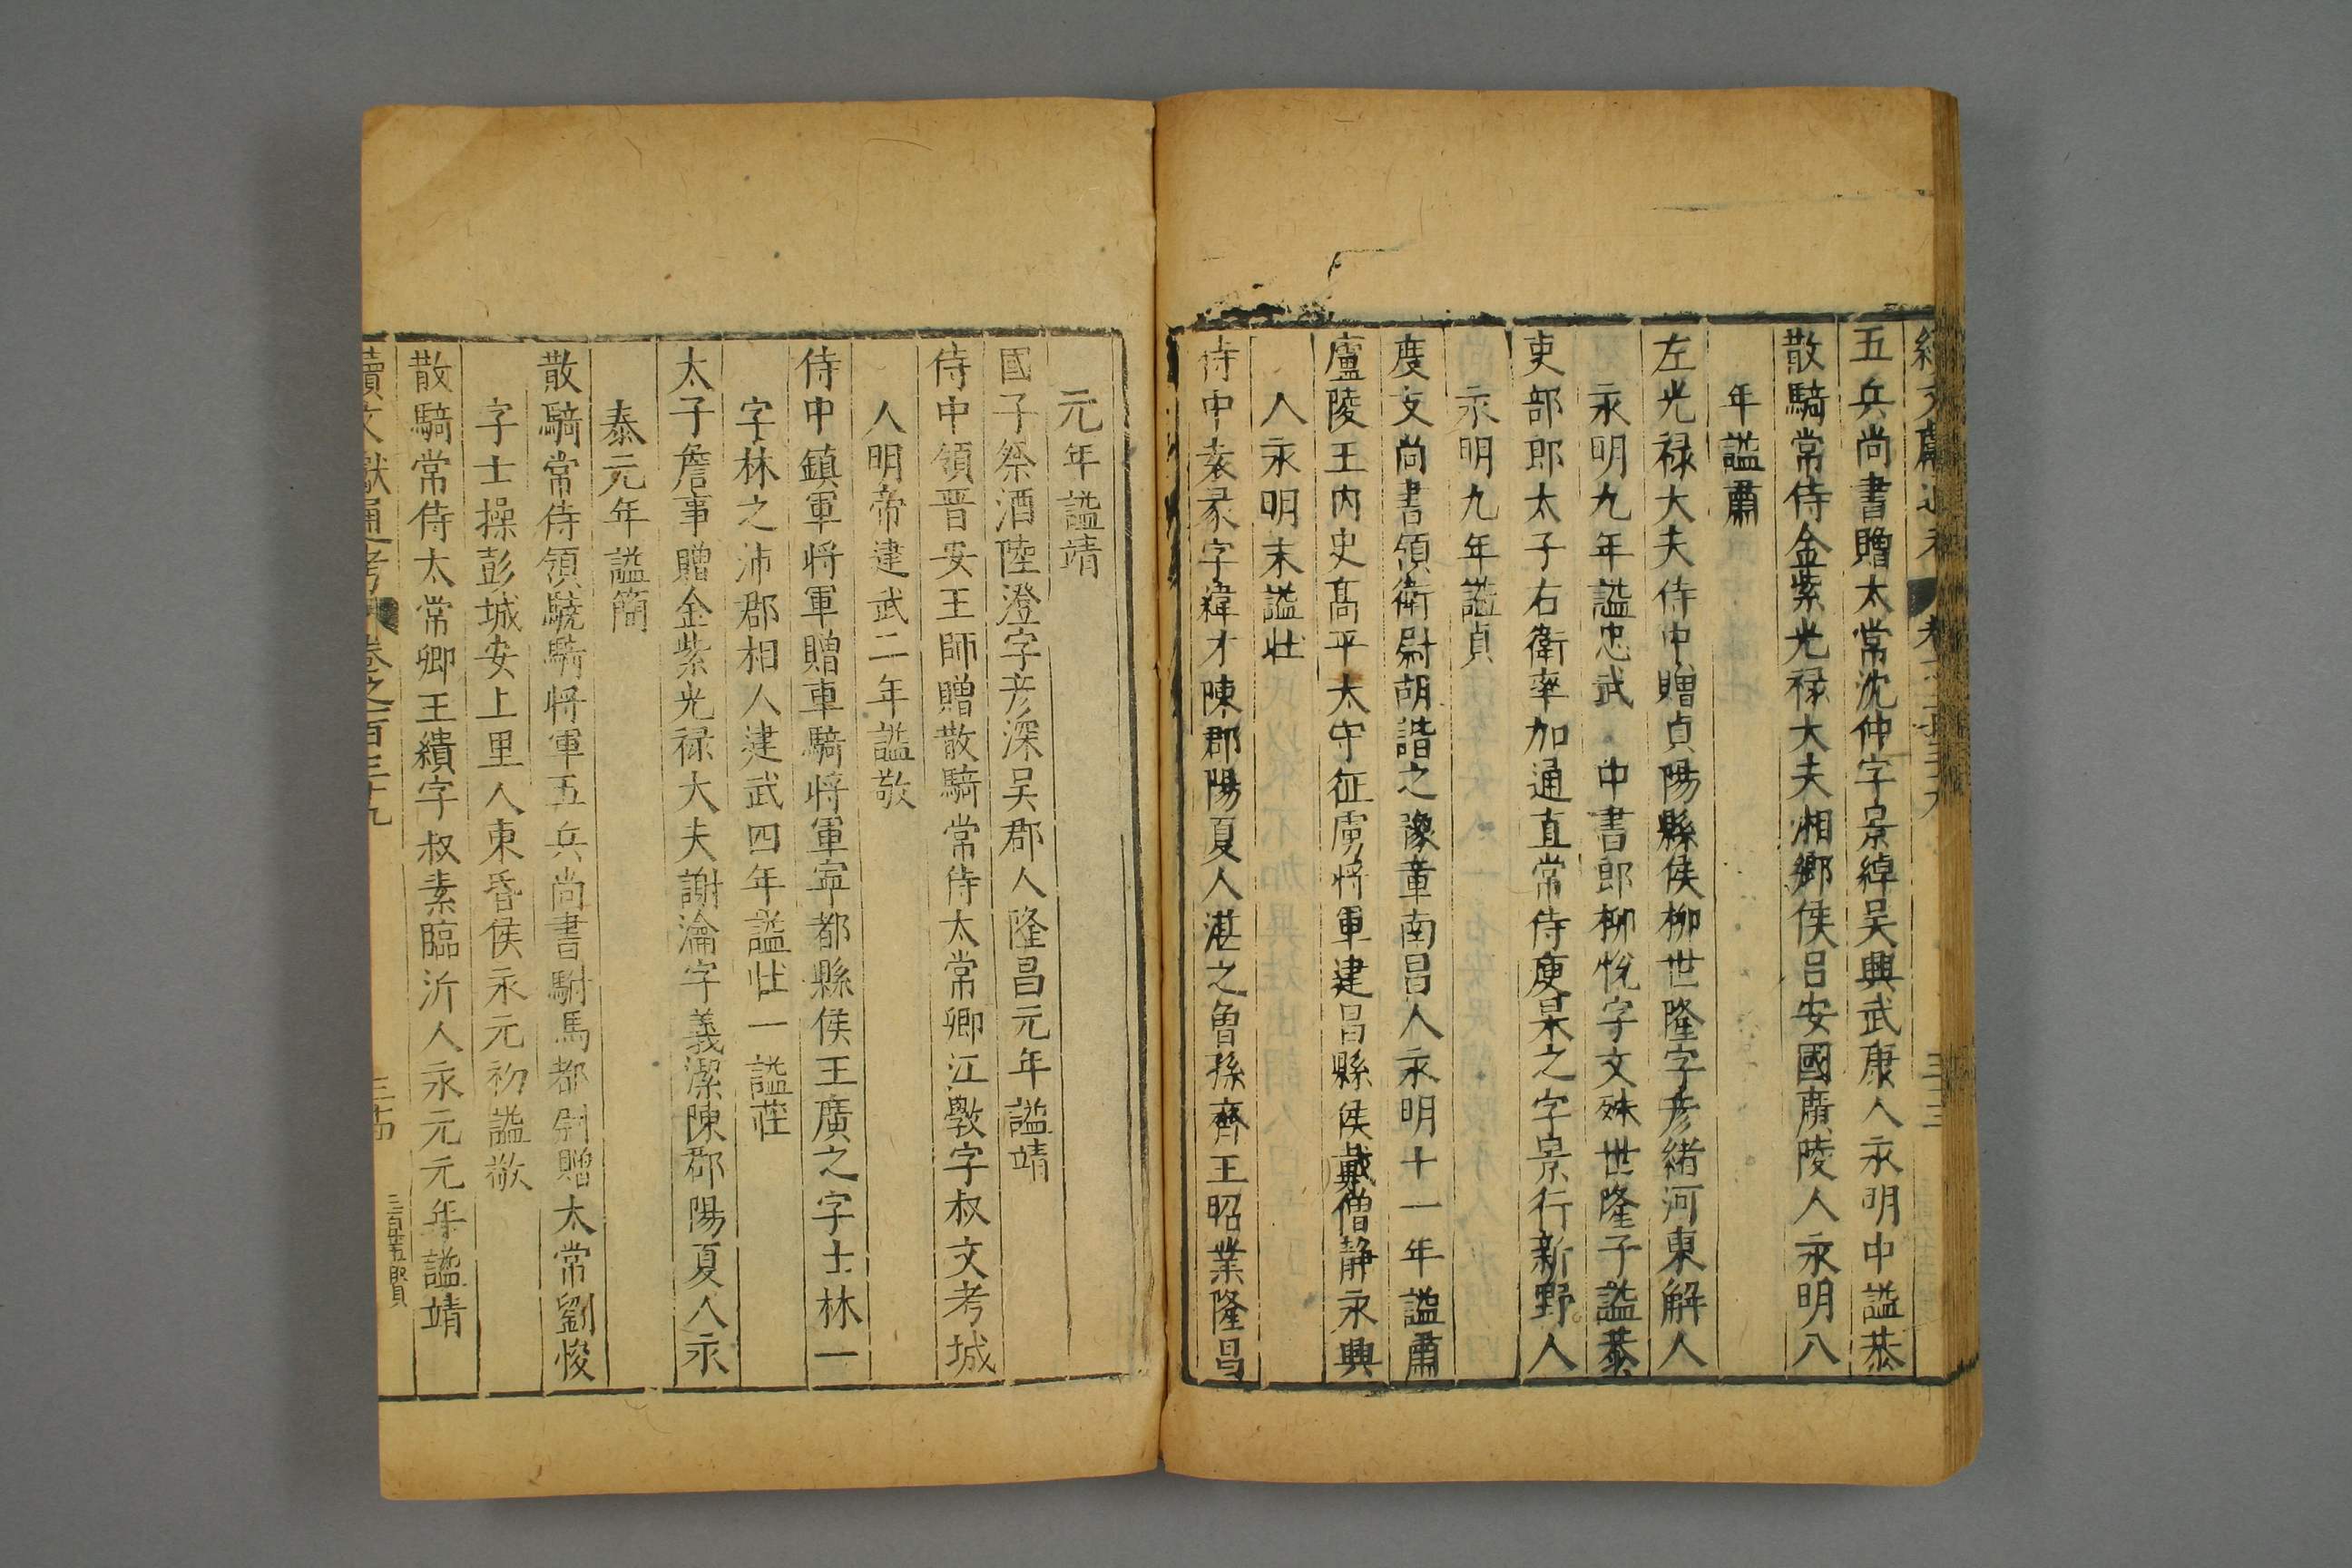 五兵尚書贈太常沈仲字景綽吳興武康人永明中謚恭
散騎常侍金紫光禄大夫湘鄉侯呂安國廣陵人永明八
年謚肅
左光禄大夫侍中贈貞陽縣侯柳世隆字彥緒河東解人
永明九年謚忠武 中書郎柳悅字文殊世隆子謚恭
吏部郎太子右衛率加通直常侍庾杲之字景行新野人
永明九年謚貞
度支尚書領衛尉胡諧之豫章南昌人永明十一年謚肅
廬陵王内史髙平太守征虜將軍建昌縣侯戴僧靜永興
人永明末謚壯
侍中袁彖字緯才陳郡陽夏人湛之曾孫齊王昭業隆昌
元年謚靖
國子祭酒陸澄字彥深吳郡人隆昌元年謚靖
侍中領晋安王師贈散騎常侍太常卿江斅字叔文考城
人明帝建武二年謚敬
侍中鎮軍將軍贈車騎將軍寧都縣侯王廣之字士林一
字林之沛郡相人建武四年謚壯一謚莊
太子詹事贈金紫光禄大夫謝瀹字義潔陳郡陽夏人永
泰元年謚簡
散騎常侍領驍騎將軍五兵尚書駙馬都尉贈太常劉悛
字士操彭城安上里人東昏侯永元初謚敬
散騎常侍太常卿王繢字叔素臨沂人永元元年謚靖
續文獻通考 卷之一百三十九